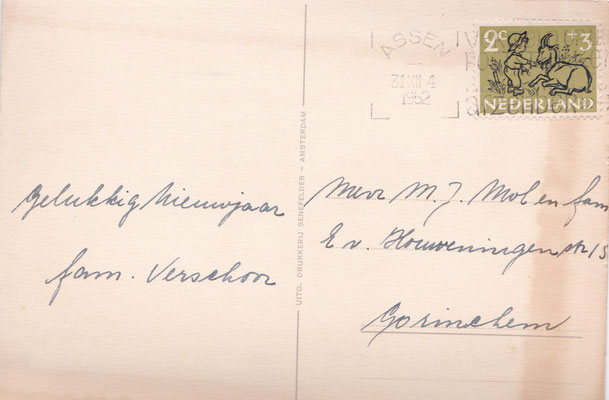 ASSEN
31 XII 4
1952
2c +3
NEDERLAND
Gelukkig Nieuwjaar
fam. Verschoor
UITG. DRUKKERIJ SENEFELDER – AMSTERDAM
M. J. Mol en fam
E v. Houweningenstr 15
Gorinchem